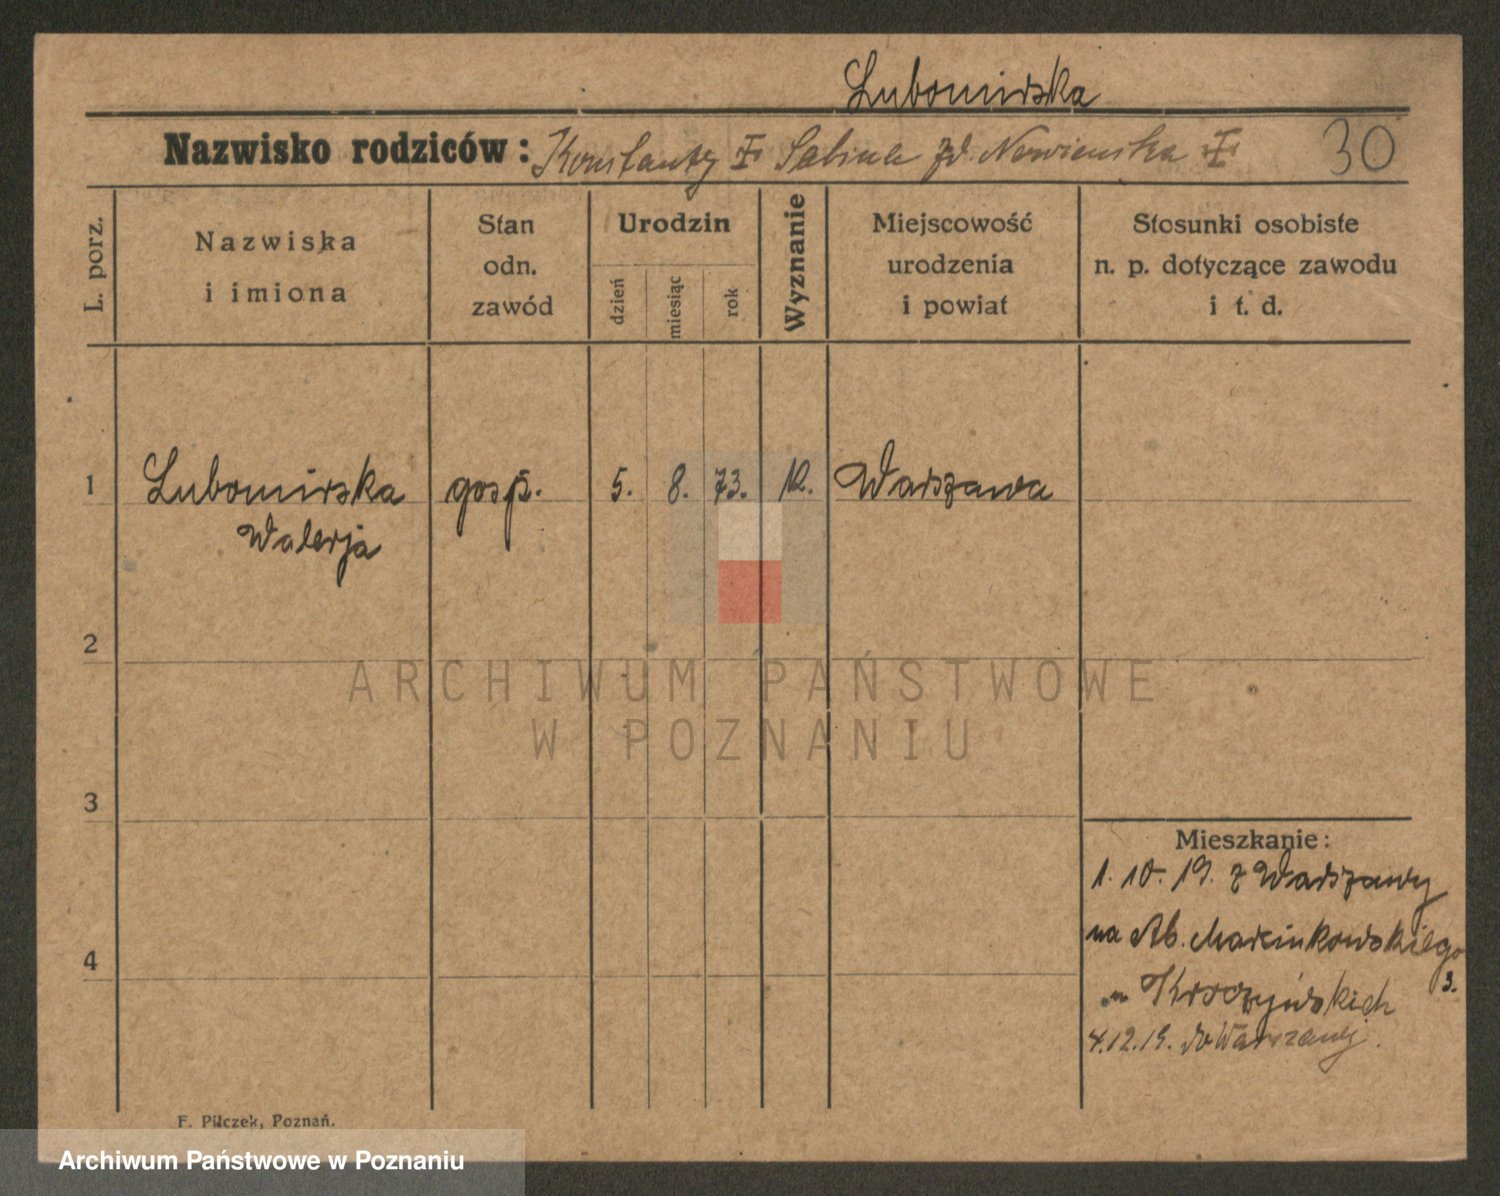 Lubomirska
Nazwisko rodziców: Konstanty Ŧ Sabina zd. Nowienska Ŧ 30
L. porz.
Nazwiska
i imiona
Stan
odn.
zawód
Urodzin
dzień
miesiąc
rok
Wyznanie
Miejscowość
urodzenia
i powiat
Stosunki osobiste
n. p. dotyczące zawodu
i t. d.
1 Lubomirska gosp. 5. 8. 73. Warszawa
Walerja
2
3
4
Mieszkanie:
1. 10. 19. z Warszawy
na Ab. Marcinkowskiego
3.
u Kroczyńskich
4.12.19. do Warszawy.
F. Pilczek, Poznań.
ARCHIWUM PAŃSTWOWE
W POZNANIU
Archiwum Państwowe w Poznaniu